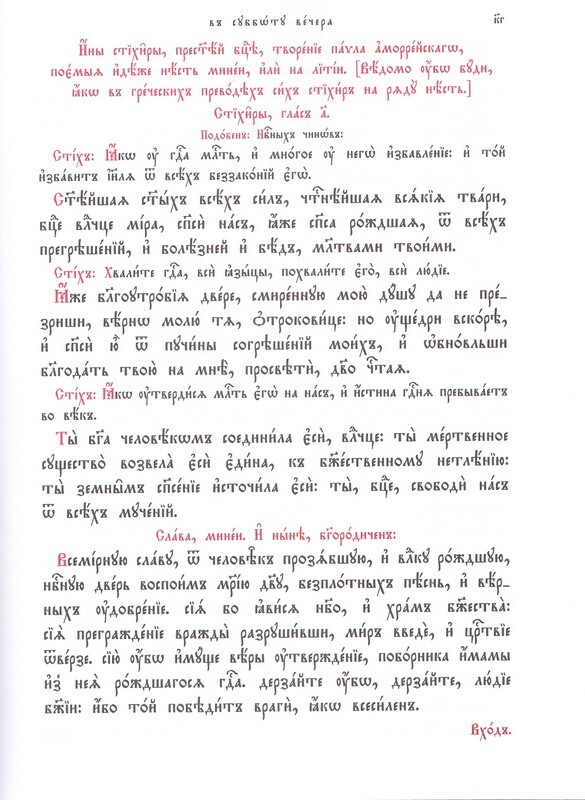 въ сꙋббѡ́тꙋ ве́чера к҃г
И҆́ны стїхи̑ры, прест҃ѣ́й бц҃ѣ, творе́нїе па́ѵла а҆морре́йскагѡ,
поє́мыѧ и҆дѣ́же нѣ́сть мине́и, и҆лѝ на лїті́и. [Вѣ́домо ᲂу҆́бѡ бꙋ́ди,
ꙗ҆́кѡ въ гре́ческихъ прево́дѣхъ си́хъ стїхи̑ръ на рѧ́дꙋ нѣ́сть.]
Стїхи̑ры, гла́съ а҃.
Подо́бенъ: Нбⷭ҇ныхъ чинѡ́въ:
Сті́хъ: Ꙗ҆́кѡ ᲂу҆ гдⷭ҇а млⷭ҇ть, и҆ мно́гое ᲂу҆ негѡ̀ и҆збавле́нїе: и҆ то́й
и҆зба́витъ і҆и҃лѧ ѿ всѣ́хъ беззако́нїй є҆гѡ̀.
Ст҃ѣ́йшаѧ ст҃ы́хъ всѣ́хъ си́лъ, чтⷭ҇нѣ́йшаѧ всѧ́кїѧ тва́ри,
бц҃е влⷣчце мі́ра, сп҃сѝ на́съ, ꙗ҆́же сп҃са ро́ждшаѧ, ѿ всѣ́хъ
прегрѣше́нїй, и҆ болѣ́зней и҆ бѣ́дъ, мл҃твами твои́ми.
Сті́хъ: Хвали́те гдⷭ҇а, всѝ ꙗ҆зы́цы, похвали́те є҆го̀, всѝ лю́дїе.
Ꙗ҆́же бл҃гоꙋтро́бїѧ две́ре, смире́ннꙋю мою̀ дꙋ́шꙋ да не пре́_
зриши, вѣ́рнѡ молю́ тѧ, ѻ҆трокови́це: но ᲂу҆ще́дри вско́рѣ,
и҆ сп҃сѝ ю҆̀ ѿ пꙋчи́ны согрѣше́нїй мои́хъ, и҆ ѡ҆бно́вльши
бл҃года́ть твою̀ на мнѣ̀, просвѣтѝ, дв҃о чтⷭ҇аѧ.
Сті́хъ: Ꙗ҆́кѡ ᲂу҆тверди́сѧ млⷭ҇ть є҆гѡ̀ на на́съ, и҆ и҆́стина гдⷭ҇нѧ пребыва́етъ
во вѣ́къ.
Ты̀ бг҃а человѣ́кѡмъ соедини́ла є҆сѝ, влⷣчце: ты̀ ме́ртвенное
сꙋщество̀ возвела̀ є҆сѝ є҆ди́на, къ бжⷭ҇ественномꙋ нетлѣ́нїю:
ты̀ земны̑мъ сп҃се́нїе и҆сточи́ла є҆сѝ: ты̀, бц҃е, свободѝ на́съ
ѿ всѣ́хъ мꙋче́нїй.
Сла́ва, мине́и. И҆ ны́нѣ, бг҃оро́диченъ:
Всемі́рнꙋю сла́вꙋ, ѿ человѣ̑къ прозѧ́бшꙋю, и҆ влⷣкꙋ ро́ждшꙋю,
нбⷭ҇нꙋю две́рь воспои́мъ мр҃і́ю дв҃ꙋ, безпло́тныхъ пѣ́снь, и҆ вѣ́р_
ныхъ ᲂу҆добре́нїе. сїѧ́ бо ꙗ҆ви́сѧ нб҃о, и҆ хра́мъ бжⷭ҇тва̀:
сїѧ̀ прегражде́нїе вражды̀ разрꙋши́вши, ми́ръ введѐ, и҆ црⷭ҇твїе
ѿве́рзе. сїю̀ ᲂу҆́бѡ и҆мꙋ́ще вѣ́ры ᲂу҆твержде́нїе, побо́рника и҆́мамы
и҆з̾ неѧ̀ ро́ждшагосѧ гдⷭ҇а. дерза́йте ᲂу҆́бѡ, дерза́йте, лю́дїе
бж҃їи: и҆́бо то́й побѣди́тъ врагѝ, ꙗ҆́кѡ всеси́ленъ.
Вхо́дъ.